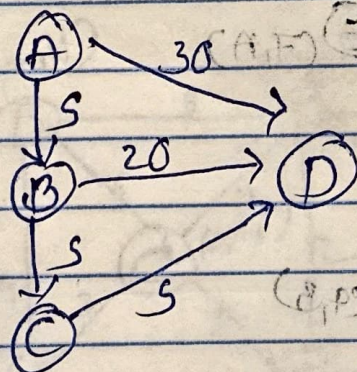 A
30
5
B
20
D
5
5
C